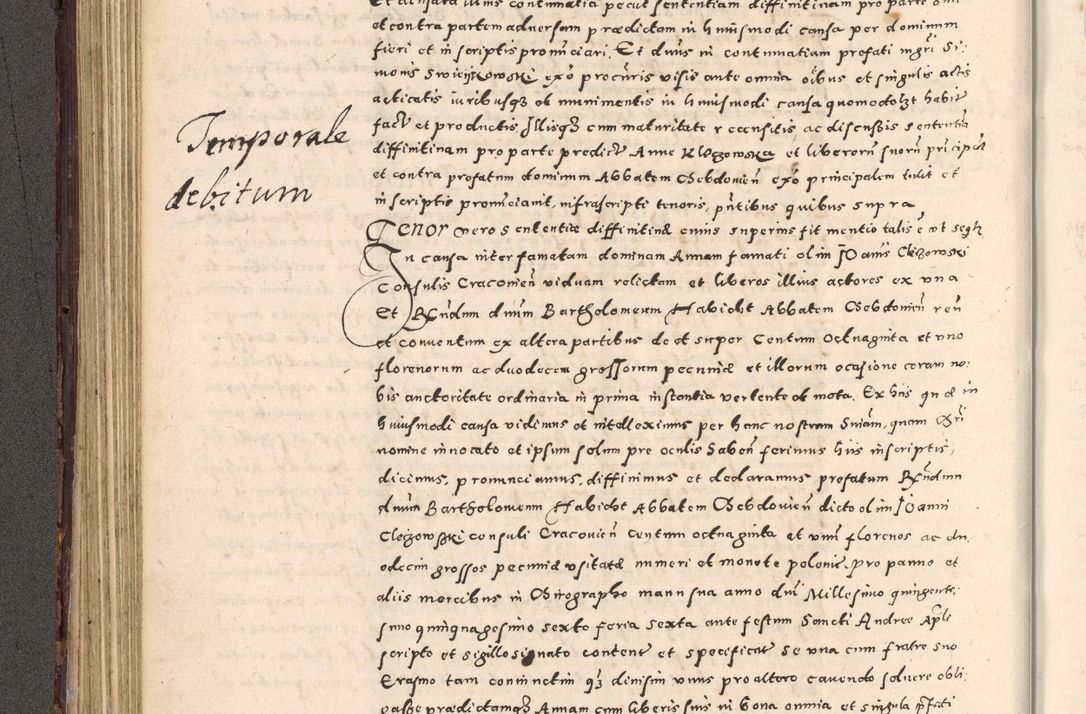 et contra partem adversam prædictam in huiusmodi causa per dominum
fieri et in scriptis pronunciari. Et dnus in contumatiam prefati mgri Si-
monis Swieykowski exo procuris visis ante omnia oibus et singulis actis
acticatis iuribusqz et munimentis in huiusmodi causa quomodolzt habit
fact et productis, Illisqz cum maturitate recensitis ac discussis sententia
Temporale
debitum
diffinitiuam pro parte predict Anne Kleczowska et liberorũ suorũ principal
et contra prefatum dominum Abbatem Hebdowieñ exo principalem tulit et
in scriptis pronunciauit, infrascripti tenoris, pñtibus quibus supra
Tenor vero sententiæ diffinitiuæ cuius superius fit mentio talis e et seqtr
In causa inter famatam dominam Annam famati olim Ioanis Cleczowski
Consulis Cracouieñ viduam relictam et liberos illius actores ex vna
Et Rndum dnum Bartholomeum Habicht Abbatem Hebdowieñ reũ
et conuentum ex altera partibus de et super Centum Octuaginta et vno
florenorum ac duodecem grossorum pecuniæ et illorum ocasione coram no-
bis auctoritate ordinaria in prima instantia vertente et mota. Ex hiis quæ in
huiusmodi causa vidimus et intelleximus per hanc nostram Sniam, quam Chri
nomine inuocato et ipsum solum pre oculis habeñ ferimus hiis in scriptis,
dicimus, pronunciamus, diffinimus et declaramus prefatum Rndum
dnum Bartholomeum Habicht Abbatem Hebdowieñ dicto olim Ioanni
Cleczowski consuli Cracouieñ Centum octuaginta et vnũ florenos ac du-
odecim grossos pecuniæ vsitatæ numeri et monete polonie, pro panno et
aliis mercibus in Chirographo manu sua anno dni Millesimo quingente-
simo quinquagesimo sexto feria sexta ante festum Sancti Andree Apli
scripto et sigillo signato content et specificat se vna cum fratre suo
Erasmo tam coniunctim qz diuisim vnus pro altero cauendo soluere obli-
passe prædictamqz Annam cum liberis suis in bona omnia et singula pfati